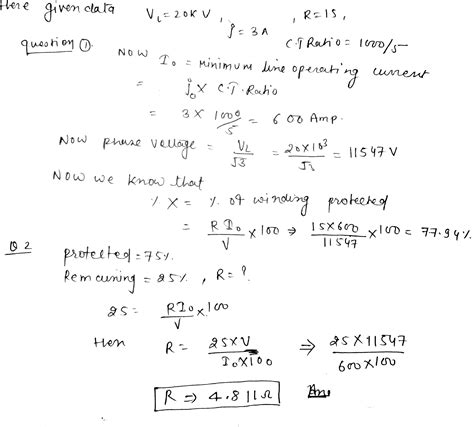 Here given data V_L = 20K V, , R = 15,
i = 3A
C.T Ratio = 1000/5
question ①.
Now I_0 = minimum line operating current
= i_0 × C.T. Ratio
= 3 × 1000/5 = 600 Amp.
Now phase vallage = V_L/√3 = 20×10^3/√3 = 11547 V
Now we know that
% X = % of winding protected
= R I_0/V × 100 ⇒ 15×600/11547 × 100 = 77.94%
Q 2 protected = 75%
Remaining = 25%, R = ?
25 = RI_0/V × 100
Hen R = 25×V/I_0×100 ⇒ 25×11547/600×100
R ⇒ 4.811Ω Ans